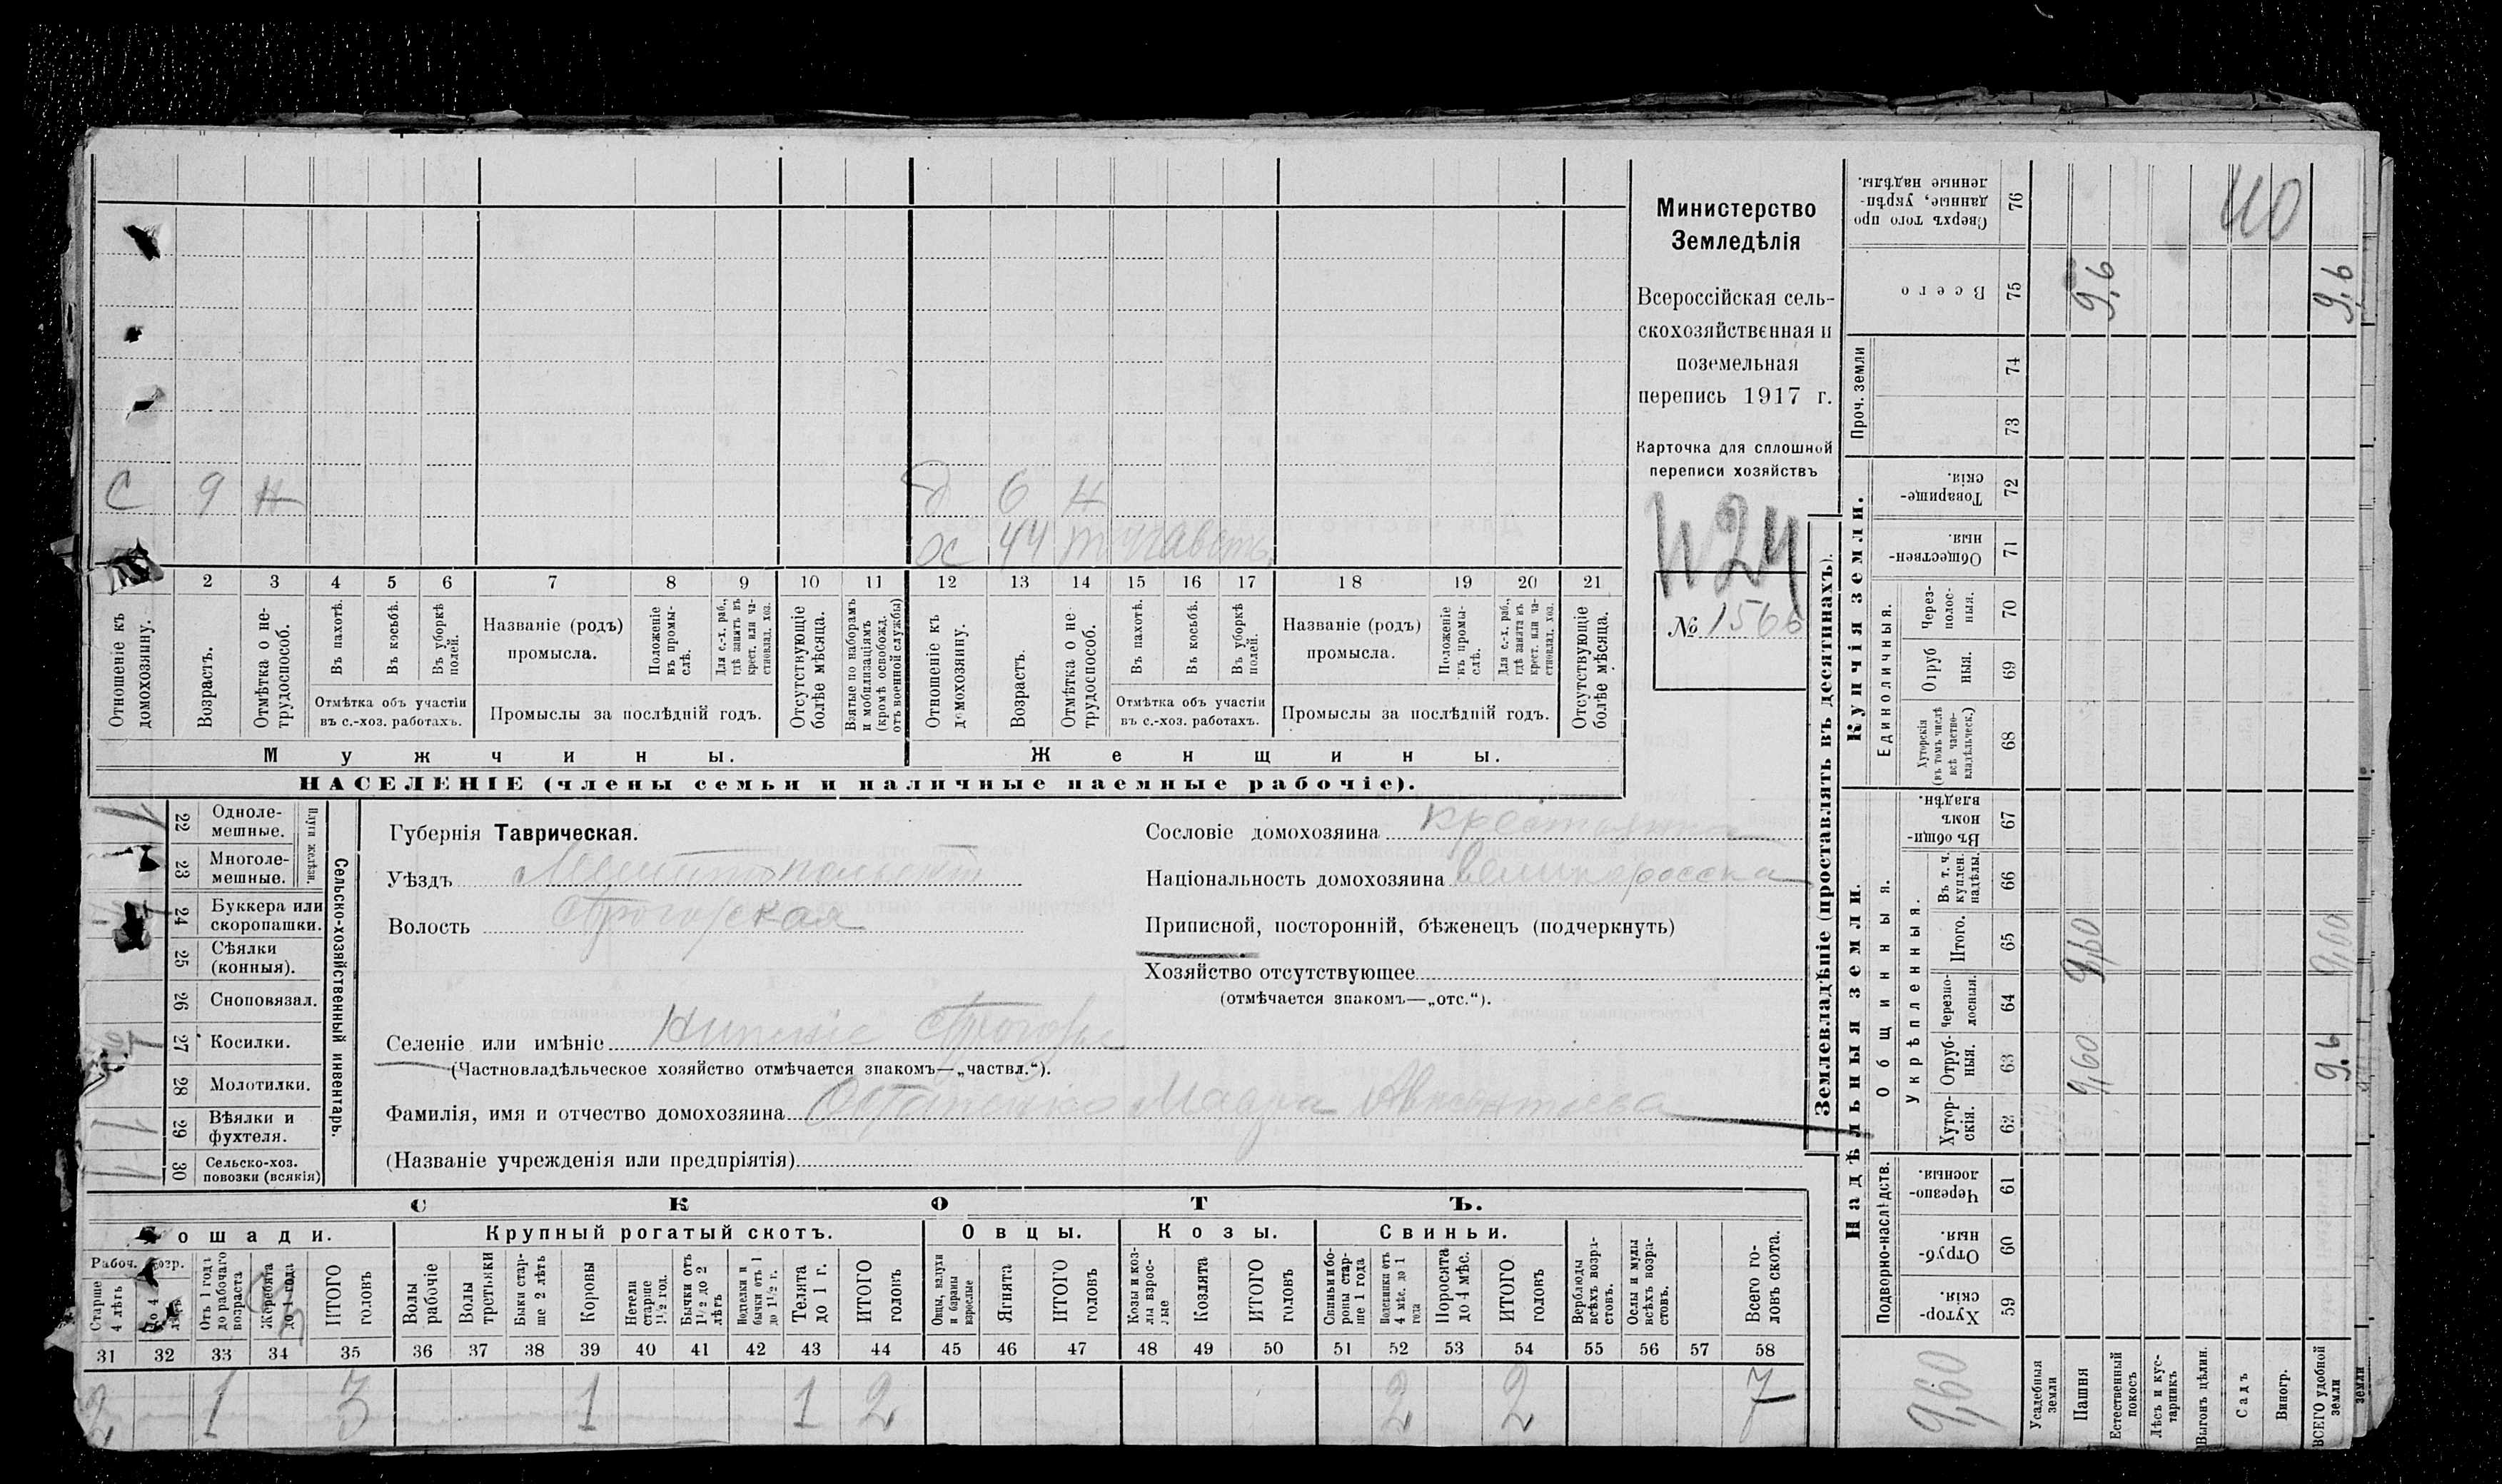 С 9 Н
д 6 Н
ж 44 т участв.
1 2 3 4 5 6 7 8 9 10 11 12 13 14 15 16 17 18 19 20 21
Отношеніе къ домохозяину.
Возрастъ.
Отмѣтка о не-трудоспособ.
Въ пахотѣ.
Въ косьбѣ.
Въ уборкѣ полей.
Отмѣтка объ участіи
въ с.-хоз. работахъ.
Названіе (родъ)
промысла.
Положеніе въ промы-слѣ.
Для с.-х. раб., гдѣ занятъ въ крест. или ча-стновлад. хоз.
Промыслы за послѣдній годъ.
Отсутствующіе болѣе мѣсяца.
Взятые по наборамъ и мобилизаціямъ (кромѣ освобожд. отъ военной службы)
Отношеніе къ домохозяину.
Возрастъ.
Отмѣтка о не трудоспособ.
Въ пахотѣ.
Въ косьбѣ.
Въ уборкѣ полей.
Отмѣтка объ участіи
въ с.-хоз. работахъ.
Названіе (родъ)
промысла.
Положеніе въ промы-слѣ.
Для с.-х. раб., гдѣ занята въ крест. или ча-стновлад. хоз.
Промыслы за послѣдній годъ.
Отсутствующіе болѣе мѣсяца.
Мужчины.
Женщины.
НАСЕЛЕНІЕ (члены семьи и наличные наемные рабочіе).
Министерство
Земледѣлія
Всероссійская сель-
скохозяйственная и
поземельная
перепись 1917 г.
Карточка для сплошной
переписи хозяйствъ
№ 1566
22 Одноле-мешные.
23 Многоле-мешные.
Плуги желѣзн.
24 Буккера или скоропашки.
25 Сѣялки (конныя).
26 Сноповязал.
27 Косилки.
28 Молотилки.
29 Вѣялки и фухтеля.
30 Сельско-хоз. повозки (всякія)
Сельско-хозяйственный инвентарь.
Губернія Таврическая.
Уѣздъ Мелитопольскій
Волость
Сословіе домохозяина крестьянка
Національность домохозяина великоросска
Приписной, посторонній, бѣженецъ (подчеркнуть)
Хозяйство отсутствующее
(отмѣчается знакомъ—„отс.“).
Селеніе или имѣніе Нижніе
(Частновладѣльческое хозяйство отмѣчается знакомъ—„частвл.“).
Фамилія, имя и отчество домохозяина
(Названіе учрежденія или предпріятія)
СКОТЪ.
Лошади.
Крупный рогатый скотъ.
Овцы.
Козы.
Свиньи.
Рабоч.
Старше 4 лѣтъ
Отъ 1 года до рабочаго возраста
Жеребята до 1 года
ИТОГО головъ
Волы рабочіе
Волы третьяки
Быки стар-ше 2 лѣтъ
Коровы
Нетели старше 1½ год.
Бычки отъ 1½ до 2 лѣтъ
Подтелки и бычки отъ 1 до 1½ г.
Телята до 1 г.
ИТОГО головъ
Овцы, валухи и бараны взрослые
Ягнята
ИТОГО головъ
Козы и коз-лы взрос-лые
Козлята
ИТОГО головъ
Свиньи и бо-ровы стар-ше 1 года
Подсвинки отъ 4 мѣс. до 1 года
Поросята до 4 мѣс.
ИТОГО головъ
Верблюды всѣхъ возра-стовъ.
Ослы и мулы всѣхъ возра-стовъ.
Всего го-ловъ скота.
31 32 33 34 35 36 37 38 39 40 41 42 43 44 45 46 47 48 49 50 51 52 53 54 55 56 57 58
2 1 3 1 1 2 2 2 7
Землевладѣніе (проставлять въ десятинахъ).
Купчія земли.
Надѣльныя земли.
Сверхъ того про данные, укрѣп-ленные надѣлы. 76
40
Всего 75
9,6
9,6
Проч. земли
74
73
Товарище-скія. 72
Обществен-ныя. 71
Единоличныя.
Через-полос-ныя. 70
Отруб ныя. 69
Хуторскія (въ томъ числѣ всѣ частно-владѣльческ.) 68
Общинныя.
Въ общин номъ владѣн. 67
Укрѣпленныя.
Въ т. ч. куплен. надѣлы. 66
Итого. 65
9,60
9,60
Черезпо-лосныя. 64
Отруб-ныя. 63
9,60
9,6
Хутор-скія. 62
Подворно-наслѣдств.
Черезпо-лосныя. 61
Отруб-ныя. 60
Хутор-скія. 59
9,60
Усадебныя земли
Пашня
Естественный покосъ
Лѣсъ и кус-тарникъ
Выгонъ цѣлин.
Садъ
Виногр.
ВСЕГО удобной земли
земли